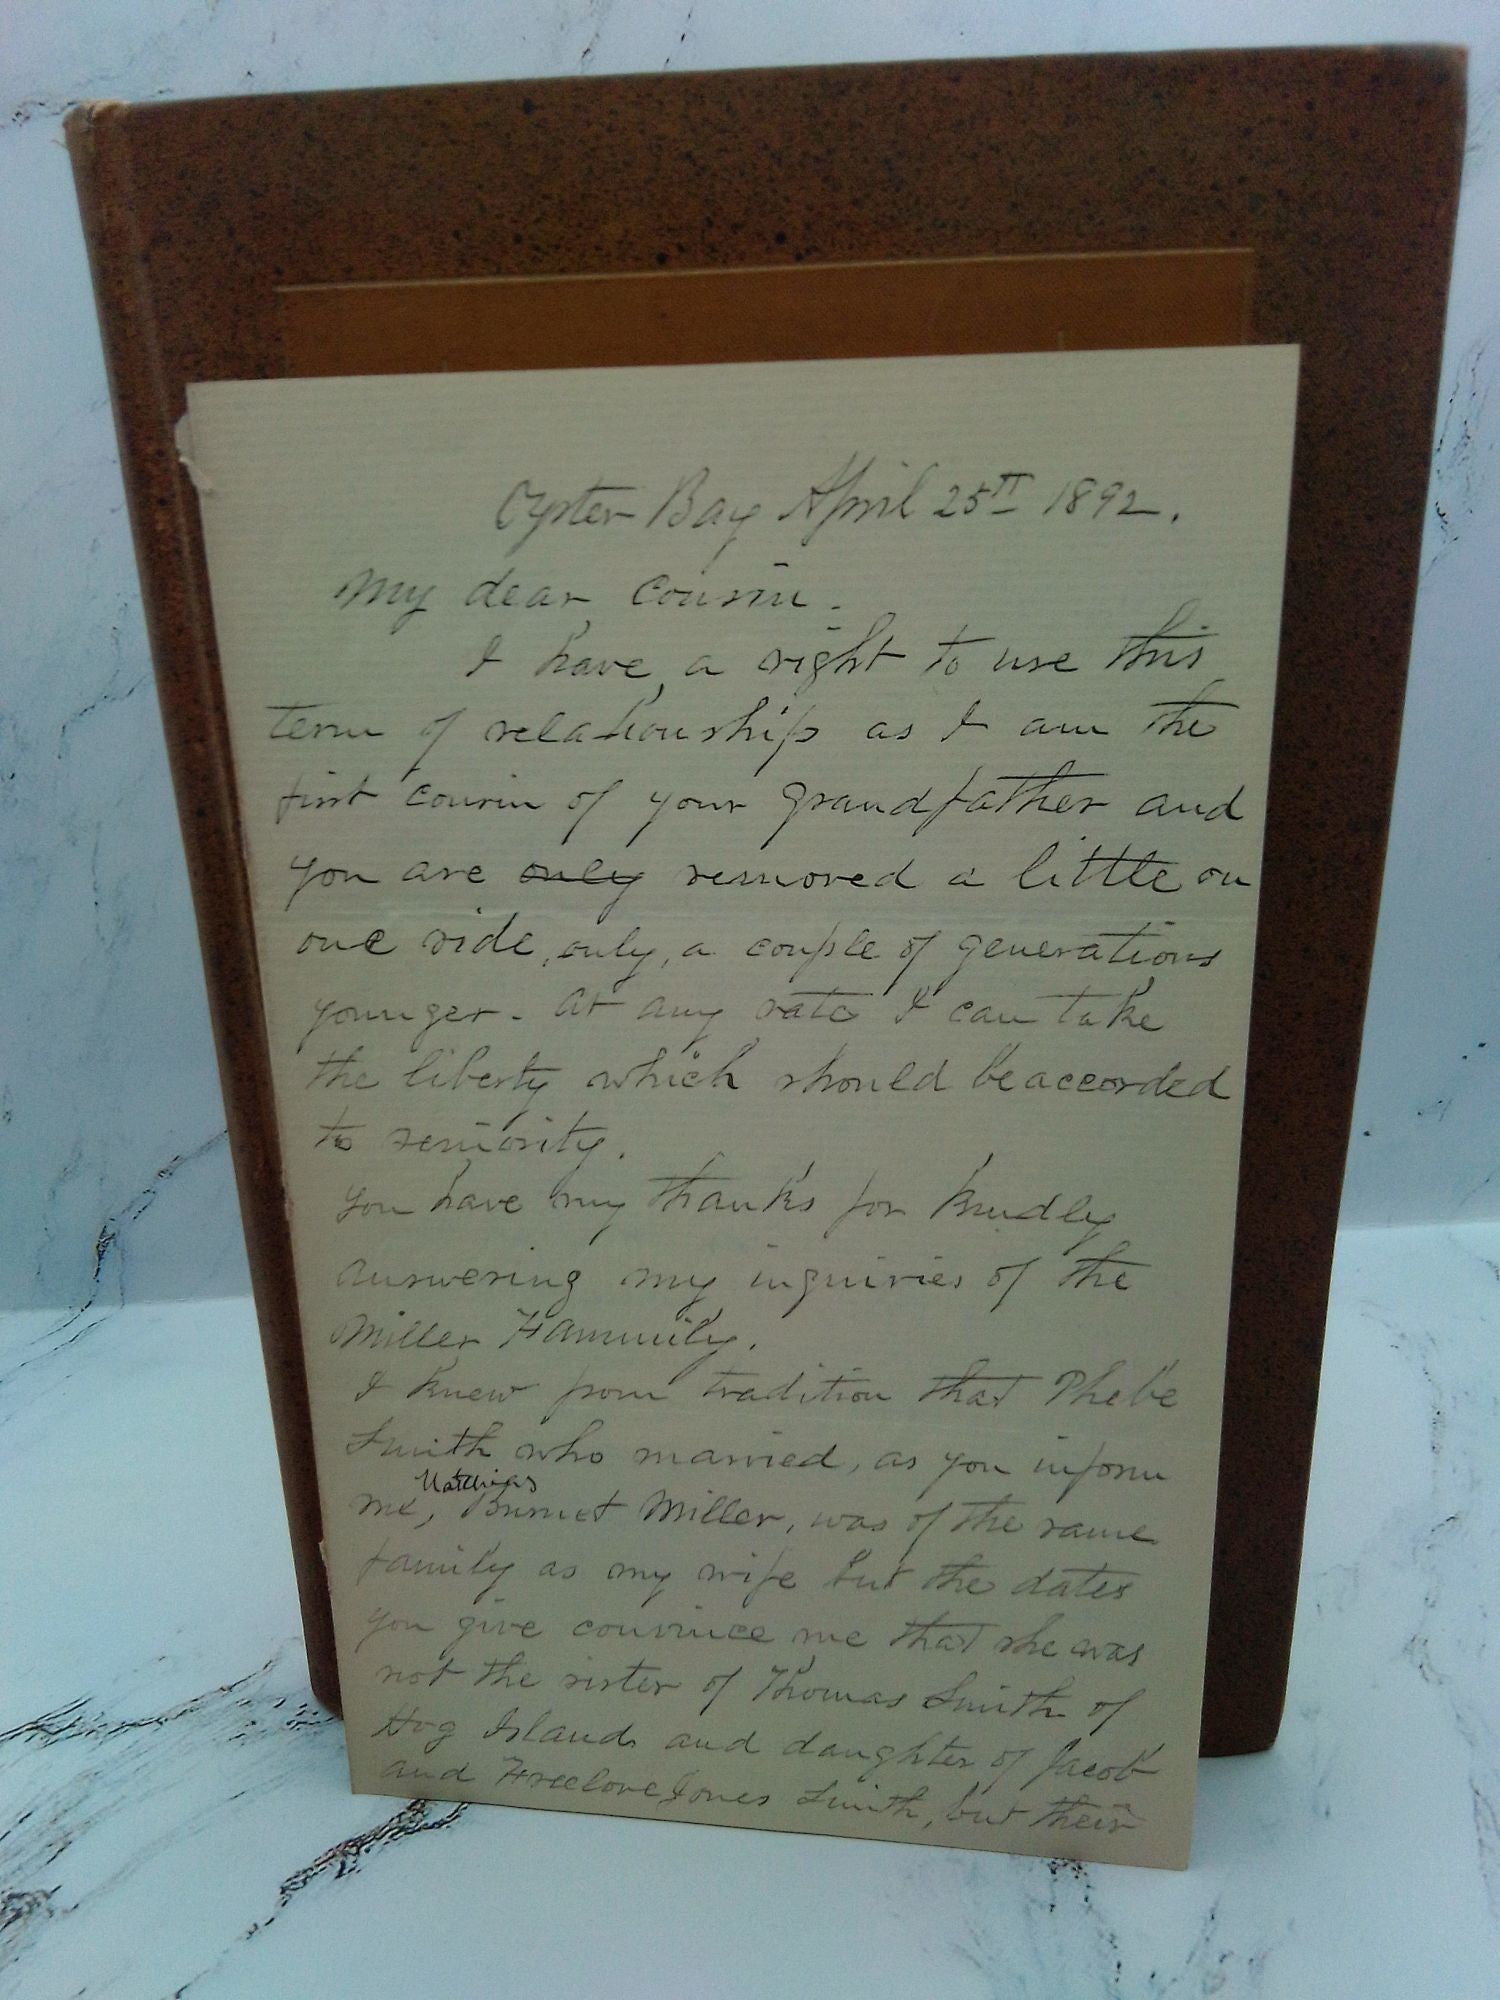 Oyster Bay April 25th 1892.
My dear cousin.
I have a right to use this
term of relationship as I am the
first cousin of your grandfather and
you are only removed a little on
one side, only, a couple of generations
younger. At any rate I can take
the liberty which should be accorded
to seniority.
You have my thanks for kindly
answering my inquiries of the
Miller Fammily.
I knew from tradition that Phebe
Smith who married, as you inform
Matthias
me, Burnet Miller, was of the same
family as my wife but the dates
you give convince me that she was
not the sister of Thomas Smith of
Hog Island and daughter of Jacob
and Freelove Jones Smith, but their